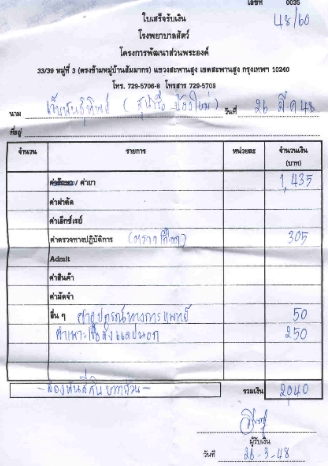 เลขที่ 0035
48/60
ใบเสร็จรับเงิน
โรงพยาบาลสัตว์
โครงการพัฒนาส่วนพระองค์
33/39 หมู่ที่ 3 (ตรงข้ามหมู่บ้านสัมมากร) แขวงสะพานสูง เขตสะพานสูง กรุงเทพฯ 10240
โทร. 729-5706-8 โทรสาร 729-5709
นาม วันที่ 26 มี.ค. 48
ที่อยู่
จำนวน รายการ หน่วยละ จำนวนเงิน (บาท)
/ ค่ายา 1,435
ค่าผ่าตัด
ค่าเอ็กซ์เรย์
ค่าตรวจทางปฏิบัติการ 305
Admit
ค่าสินค้า
ค่ามัดจำ
อื่น ๆ ค่าอุปกรณ์ทางการแพทย์ 50
ค่าเพาะเชื้อส่งแลปนอก 250
- สองพันสี่สิบบาทถ้วน - รวมเงิน 2040
ผู้รับเงิน
วันที่ 26-3-48